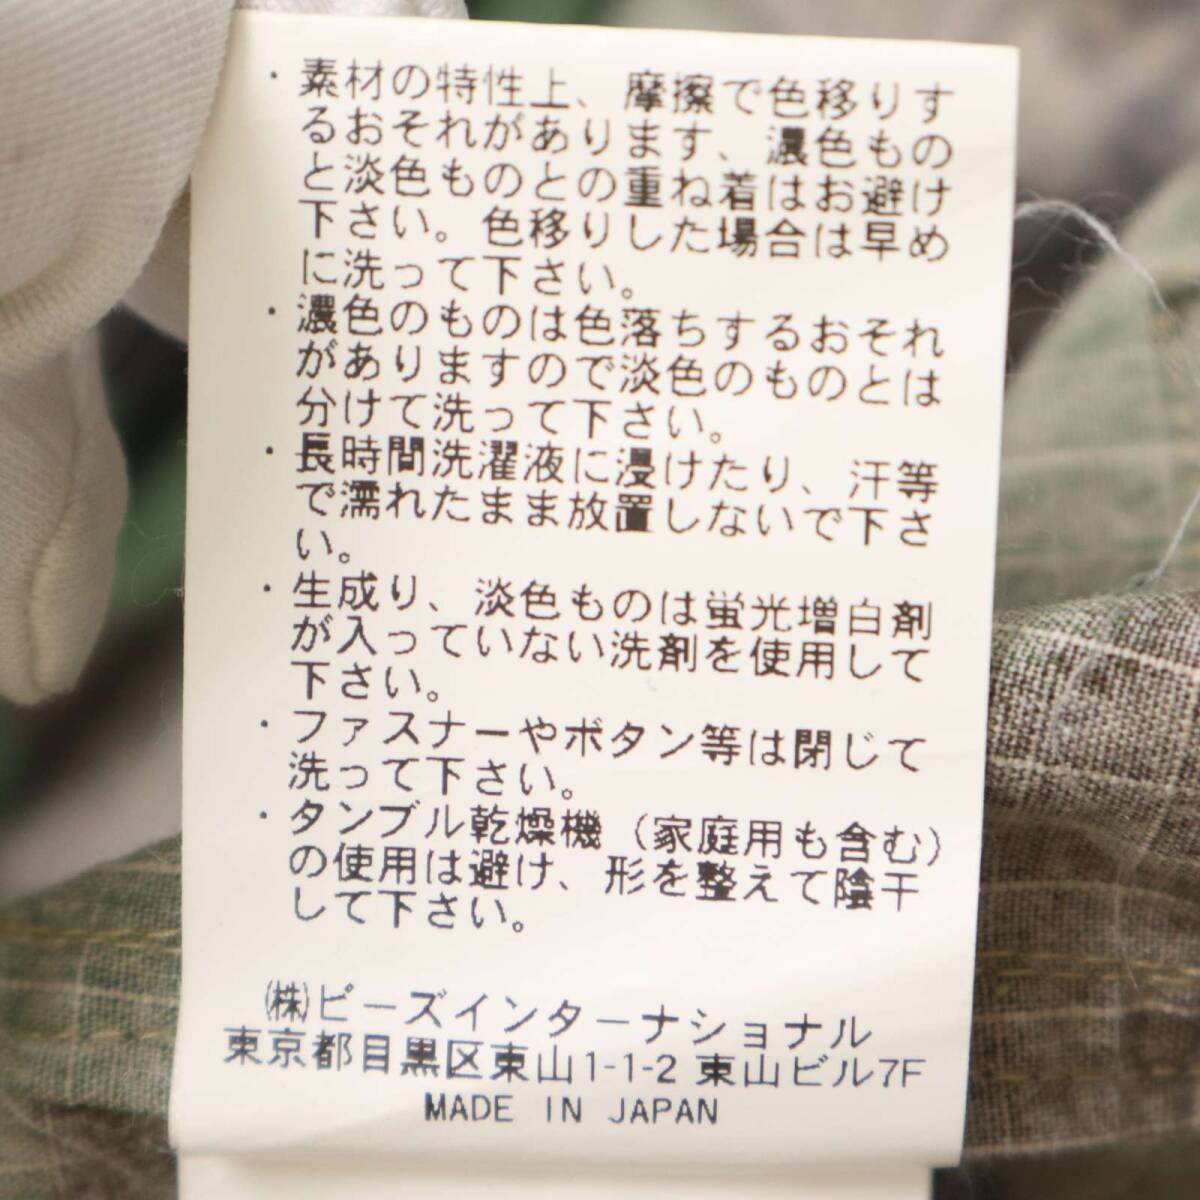 ・素材の特性上、摩擦で色移りす
るおそれがあります、濃色もの
と淡色ものとの重ね着はお避け
下さい。色移りした場合は早め
に洗って下さい。
・濃色のものは色落ちするおそれ
がありますので淡色のものとは
分けて洗って下さい。
・長時間洗濯液に浸けたり、汗等
で濡れたまま放置しないで下さ
い。
・生成り、淡色ものは蛍光増白剤
が入っていない洗剤を使用して
下さい。
・ファスナーやボタン等は閉じて
洗って下さい。
・タンブル乾燥機(家庭用も含む)
の使用は避け、形を整えて陰干
して下さい。
(株)ピーズインターナショナル
東京都目黒区東山1-1-2 東山ビル7F
MADE IN JAPAN